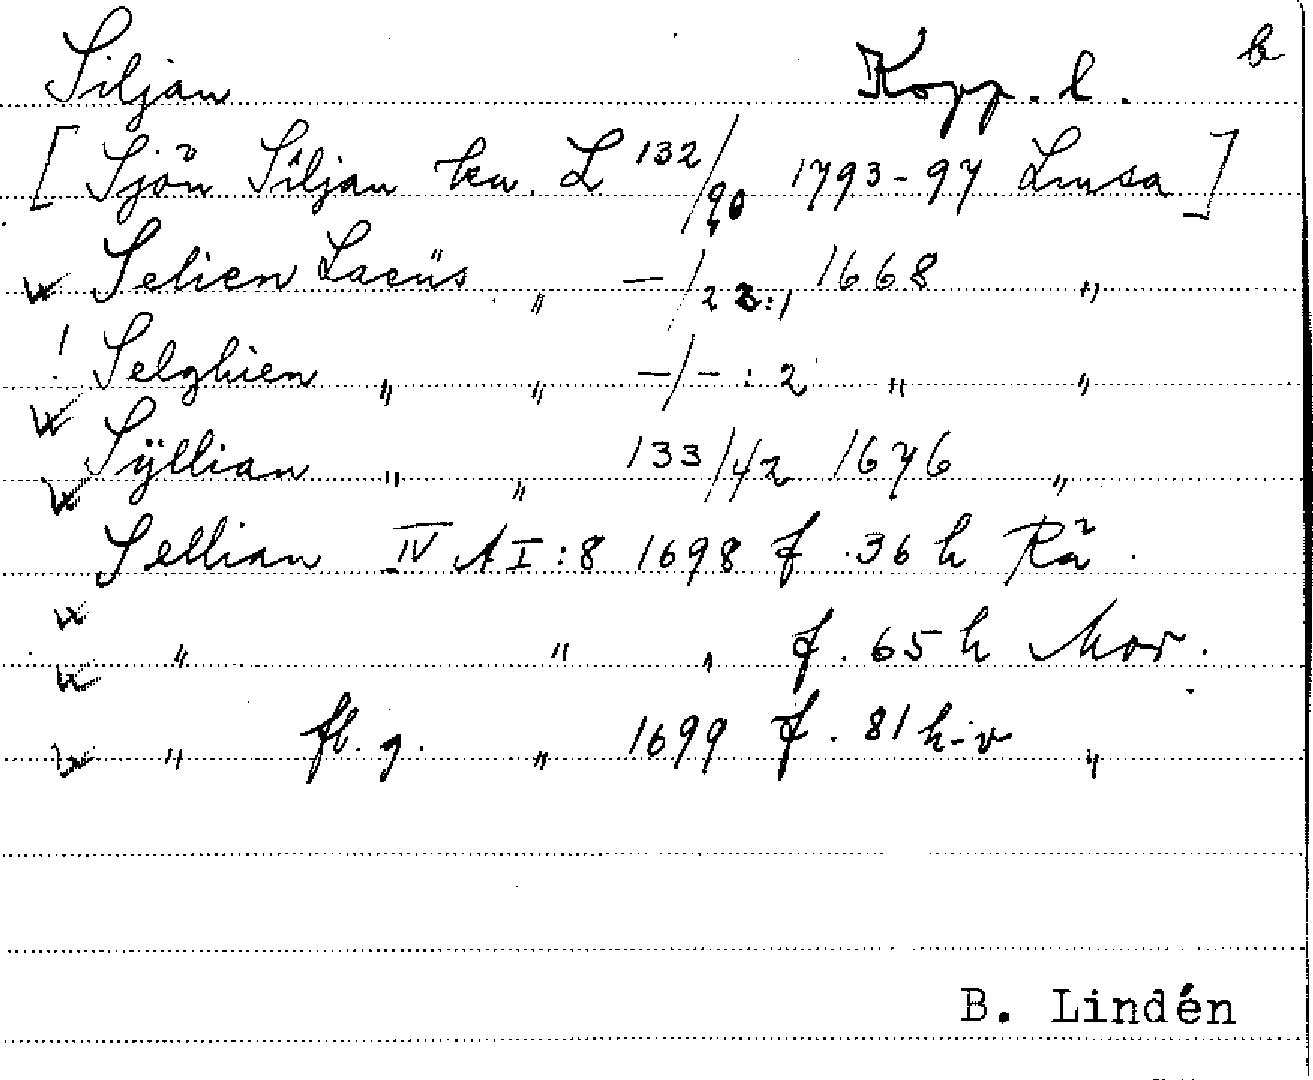 Siljan Kopp. l. b
[ Sjön Siljan ku. L 132/90 1793-97 Lmsa ]
Selien Lacüs " -/23:1 1668 "
! Selghien " " -/- : 2 " "
Sÿllian " " 133/42 1676 "
Sellian IV A I:8 1698 f. 36 h Rä.
" " " f. 65 h Mor.
" fl. g. " 1699 f. 81 h-v "
B. Lindén